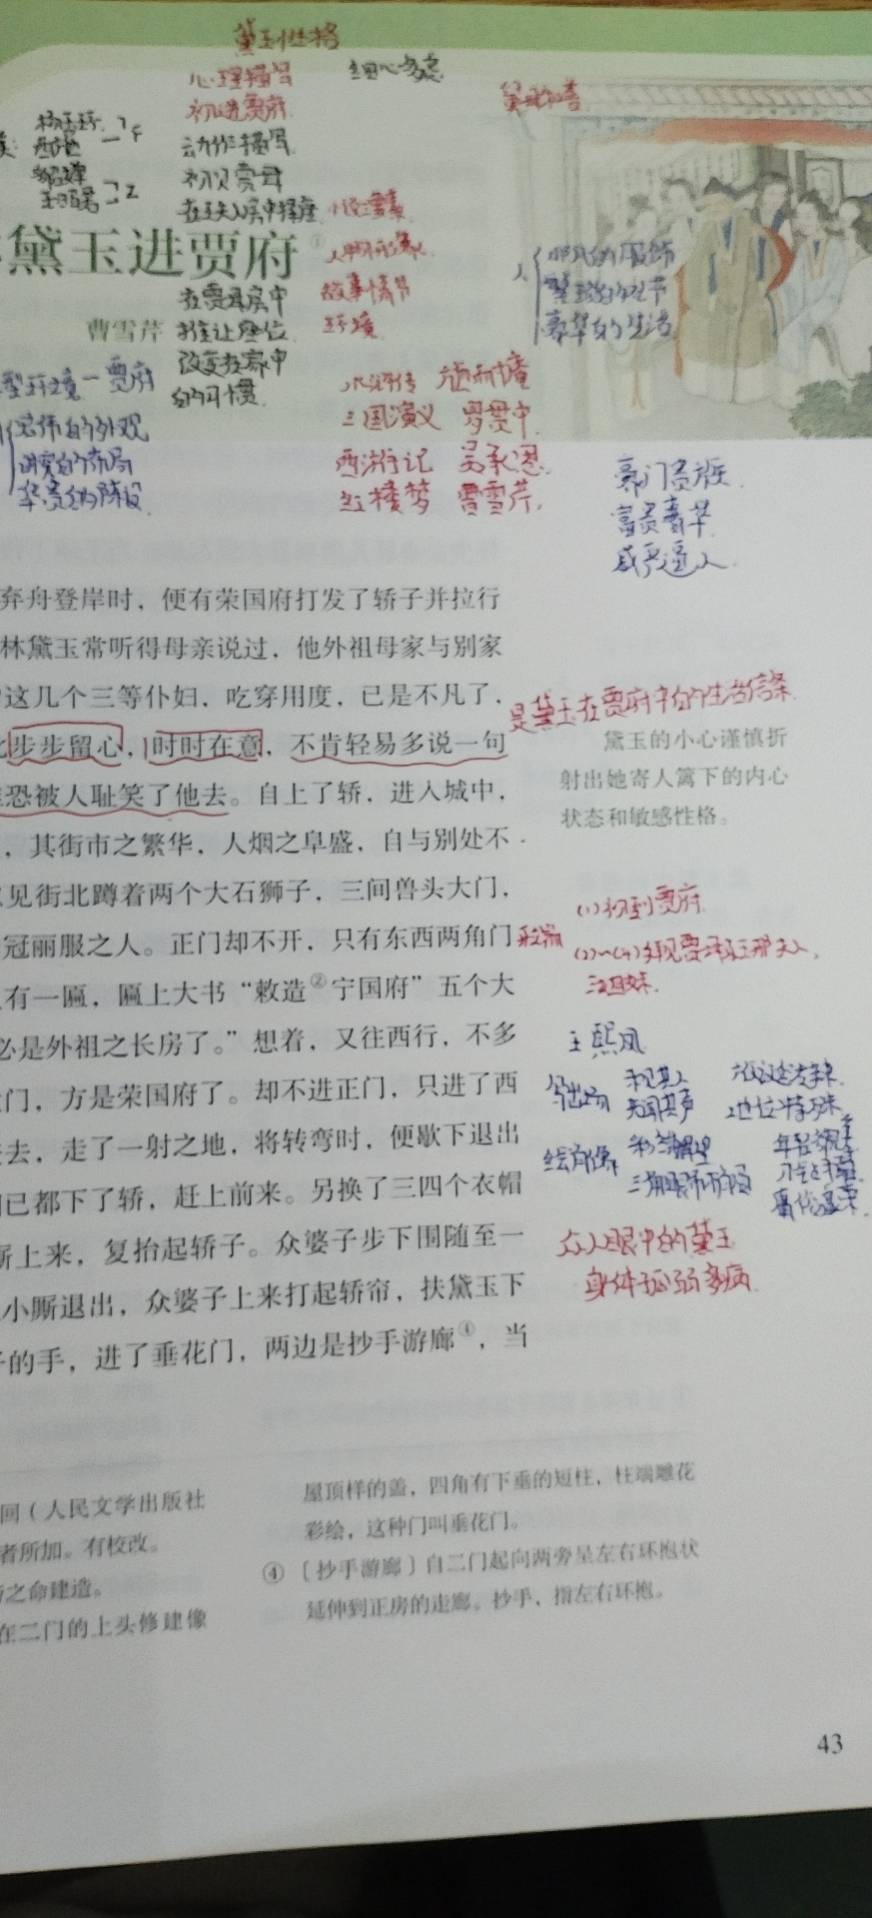 黛玉性格
心理描写 细心多虑
初进贾府
动作描写
初见贾母
在王夫人房中择座
小说三要素
人物形象
黛玉进贾府①
在贾母房中
故事情节
曹雪芹
推让座位
环境
改变在家中
的习惯
非凡的服饰
繁琐的礼节
豪华的生活
型环境一贾府
宏伟的外观
讲究的布局
华贵的陈设
水浒传 施耐庵
三国演义 罗贯中
西游记 吴承恩
红楼梦 曹雪芹
豪门贵族
富贵奢华
威严逼人
弃舟登岸时，便有荣国府打发了轿子并拉行
林黛玉常听得母亲说过，他外祖母家与别家
这几个三等仆妇，吃穿用度，已是不凡了，
步步留心，时时在意，不肯轻易多说一句
恐被人耻笑了他去。自上了轿，进入城中，
，其街市之繁华，人烟之阜盛，自与别处不
见街北蹲着两个大石狮子，三间兽头大门，
冠丽服之人。正门却不开，只有东西两角门
有一匾，匾上大书“敕造②宁国府”五个大
必是外祖之长房了。”想着，又往西行，不多
门，方是荣国府了。却不进正门，只进了西
去，走了一射之地，将转弯时，便歇下退出
已都下了轿，赶上前来。另换了三四个衣帽
厮上来，复抬起轿子。众婆子步下围随至一
小厮退出，众婆子上来打起轿帘，扶黛玉下
的手，进了垂花门，两边是抄手游廊④，当
是黛玉在贾府中的生活信条
黛玉的小心谨慎折
射出她寄人篱下的内心
状态和敏感性格。
(1)初到贾府
王熙凤
写出场 未见其人
先闻其声 地位特殊
绘肖像
众人眼中的黛玉
身体孤弱多病
回（人民文学出版社
者所加。有校改。
之命建造。
在二门的上头修建像
屋顶样的盖，四角有下垂的短柱，柱端雕花
彩绘，这种门叫垂花门。
④〔抄手游廊〕自二门起向两旁呈左右环抱状
延伸到正房的走廊。抄手，指左右环抱。
43